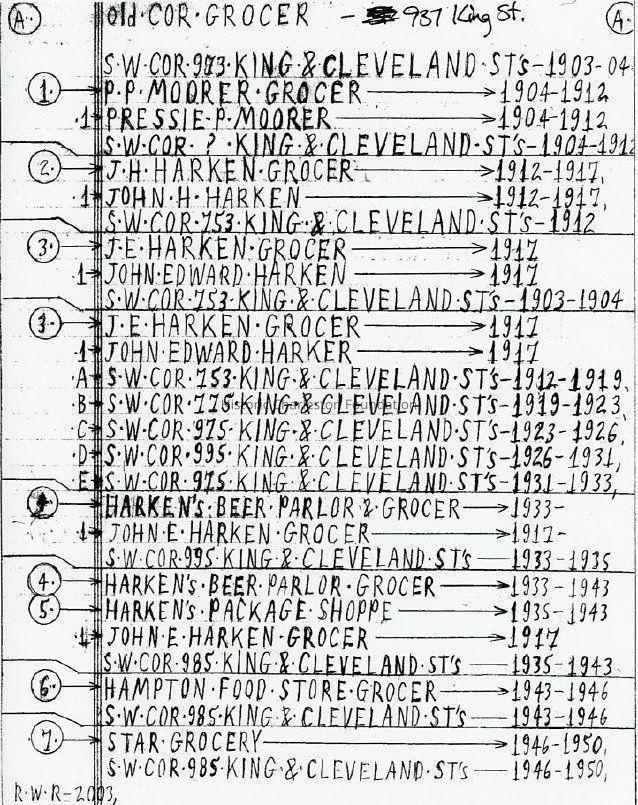 A. old·COR·GROCER - 937 King St. A.
S·W·COR·973·KING·&·CLEVELAND·ST's-1903-04
1. P·P·MOORER·GROCER 1904-1912
1 PRESSIE·P·MOORER 1904-1912
S·W·COR·?·KING·&·CLEVELAND·ST's-1904-1912
2. J·H·HARKEN·GROCER 1912-1917,
1 JOHN·H·HARKEN 1912-1917,
S·W·COR·753·KING·&·CLEVELAND·ST's-1912
3. J·E·HARKEN·GROCER 1917
1 JOHN·EDWARD·HARKEN 1917
S·W·COR·753·KING·&·CLEVELAND·ST's-1903-1904
3. J·E·HARKEN·GROCER 1917
1 JOHN·EDWARD·HARKER 1917
A S·W·COR·753·KING·&·CLEVELAND·ST's-1912-1919,
B S·W·COR·775·KING·&·CLEVELAND·ST's-1919-1923,
C S·W·COR·975·KING·&·CLEVELAND·ST's-1923-1926,
D S·W·COR·995·KING·&·CLEVELAND·ST's-1926-1931,
E S·W·COR·975·KING·&·CLEVELAND·ST's-1931-1933,
HARKEN's·BEER·PARLOR·&·GROCER 1933-
1 JOHN·E·HARKEN·GROCER 1917-
S·W·COR·995·KING·&·CLEVELAND·ST's 1933-1935
4. HARKEN's·BEER·PARLOR·GROCER 1933-1943
5. HARKEN's·PACKAGE·SHOPPE 1935-1943
1 JOHN·E·HARKEN·GROCER 1917
S·W·COR·985·KING·&·CLEVELAND·ST's 1935-1943
6. HAMPTON·FOOD·STORE·GROCER 1943-1946
S·W·COR·985·KING·&·CLEVELAND·ST's 1943-1946
7. STAR·GROCERY 1946-1950,
S·W·COR·985·KING·&·CLEVELAND·ST's 1946-1950,
R·W·R-2003,